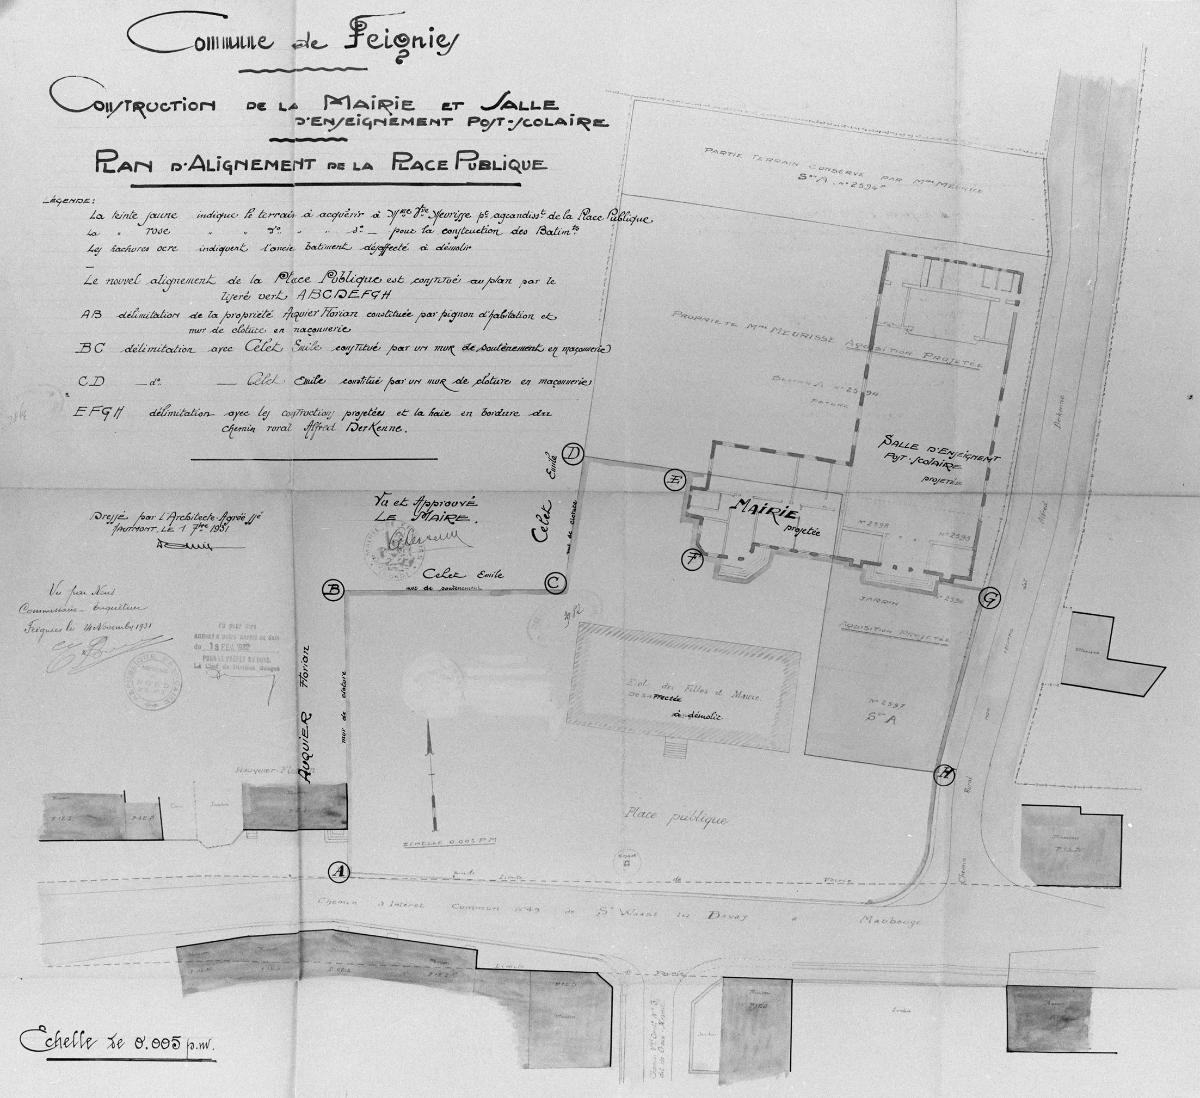 Commune de Feignies
Construction de la Mairie et Salle
d'Enseignement Post-scolaire
Plan d'Alignement de la Place Publique
Légende:
La teinte jaune indique le terrain à acquérir à Mme Vve Meurisse pr agrandisst de la Place Publique
La " rose " " do " " do — pour la construction des Batimts
Les hachures ocre indiquent l'ancien batiment désaffecté à démolir
Le nouvel alignement de la Place Publique est constitué au plan par le
liseré vert ABCDEFGH
AB délimitation de la propriété Auquier Florian constituée par pignon d'habitation et
mur de cloture en maçonnerie
BC délimitation avec Celet Emile constitué par un mur de soutènement en maçonnerie
CD —do— — Celet Emile constitué par un mur de cloture en maçonnerie
EFGH délimitation avec les constructions projetées et la haie en bordure du
chemin rural Alfred Derkenne.
Dressé par l'Architecte Agréé ssé
Hautmont le 1 7bre 1931
Vu et Approuvé
Le Maire.
Vu par Nous
Commissaire Enquêteur
Feignies le 24 Novembre 1931
du 18 FEV. 1932
POUR LE PREFET DU NORD,
Partie terrain conservé par Mme Meurisse
Son A. no 2594p
Propriété Mme Meurisse Aquisition Projetée
Section A no 2594
Pature
Salle d'Enseignemt
Post-scolaire
projetée
Mairie
projetée
No 2598
No 2595
No 2596
Jardin
Aquisition Projetée
No 2597
Son A
A
B
C
D
E
F
G
H
Celet Emile
mur de cloture
Celet Emile
mur de soutènement
Auquier Florian
mur de cloture
Ecole des Filles et Mairie
Désaffectée
à démolir
Place publique
Echelle 0.005 P.M
Chemin d'Intérêt Commun no 49 de St Waast lez Bavay à Maubeuge
Chemin Rural dit Alfred Derkenne
Maison
Jardin
Echelle de 0.005 p.m.